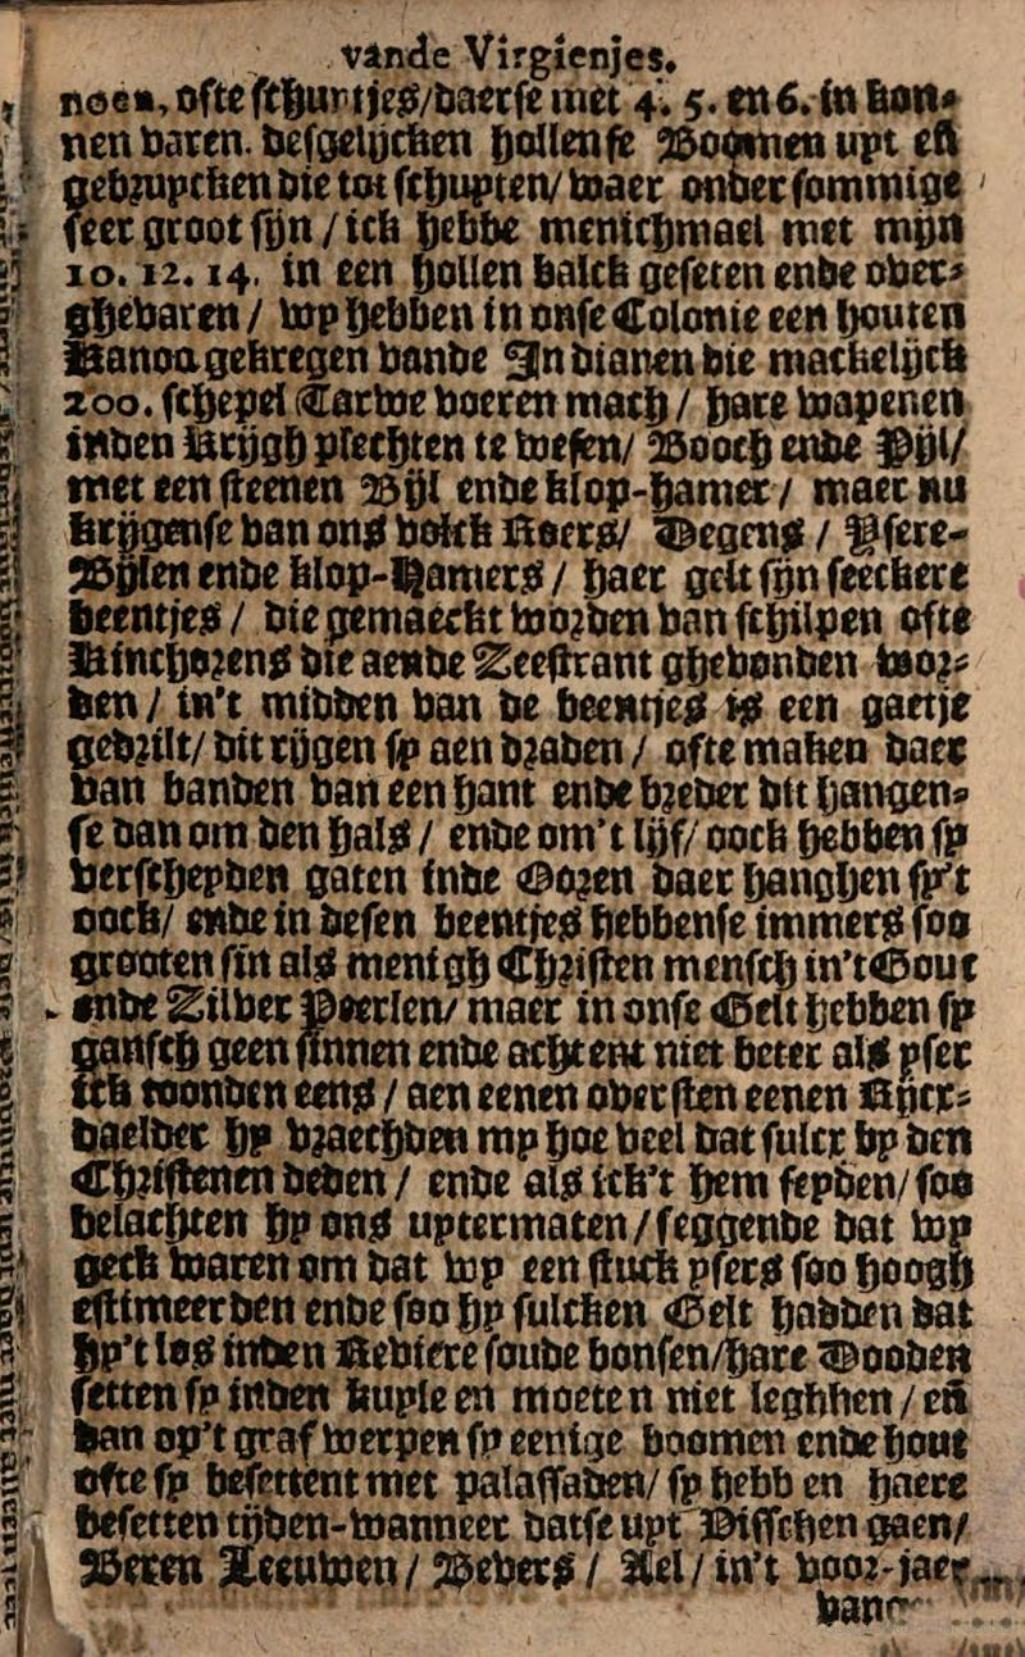 vande Virgienjes.
noen, ofte schuntjes/daerse met 4. 5. en 6. in kon-
nen varen. desgelijcken hollense Boomen uyt eñ
gebruycken die tot schuyten/ waer onder sommige
seer groot sijn / ick hebbe menichmael met mijn
10. 12. 14. in een hollen balck geseten ende over-
ghevaren / wy hebben in onse Colonie een houten
Kanoa gekregen vande Indianen die mackelijck
200. schepel Tarwe voeren mach / hare wapenen
inden Krijgh plechten te wesen/ Booch ende Pijl/
met een steenen Bijl ende klop-hamer / maer nu
krijgense van ons volck Roers/ Degens / Ysere-
Bijlen ende klop-Hamers / haer gelt sijn seeckere
beentjes / die gemaeckt worden van schilpen ofte
Kinchorens die aende Zeestrant ghevonden wor-
den / in't midden van de beentjes is een gaetje
gedrilt/ dit rijgen sy aen draden / ofte maken daer
van banden van een hant ende breder dit hangen-
se dan om den hals / ende om't lijf/ oock hebben sy
verscheyden gaten inde Ooren daer hanghen sy't
oock/ ende in desen beentjes hebbense immers soo
grooten sin als menigh Christen mensch in't Gout
ende Zilver Peerlen/ maer in onse Gelt hebben sy
gansch geen sinnen ende achtent niet beter als yser
ick toonden eens / aen eenen oversten eenen Rijcx-
daelder hy vraechden my hoe veel dat sulcx by den
Christenen deden / ende als ick't hem seyden/ soo
belachten hy ons uytermaten / seggende dat wy
geck waren om dat wy een stuck ysers soo hoogh
estimeerden ende soo hy sulcken Gelt hadden dat
hy't los inden Reviere soude bonsen/hare Dooden
setten sy inden kuyle en moeten niet leghhen / eñ
dan op't graf werpen sy eenige boomen ende hout
ofte sy besettent met palassaden/ sy hebben haere
besetten tijden-wanneer datse uyt Visschen gaen/
Beren Leeuwen / Bevers / Ael / in't voor-jaer